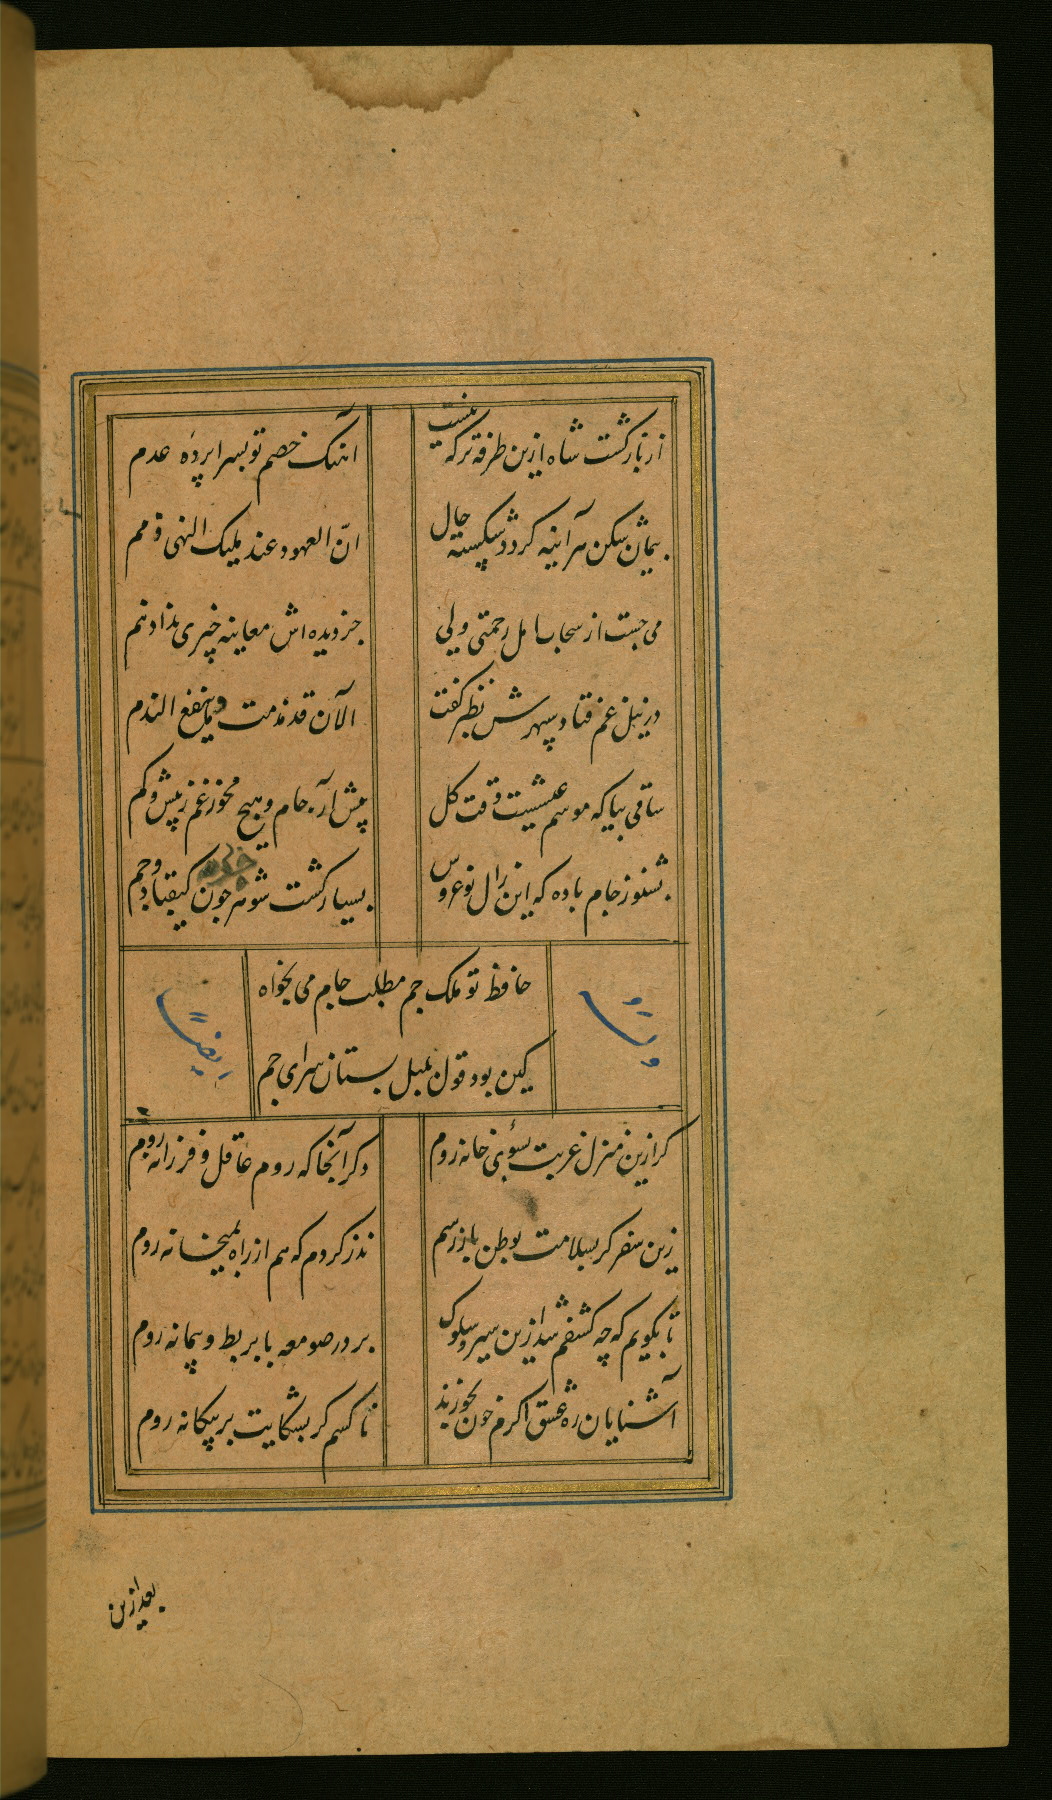 از بازگشت شاه ازین طرفه ترکه نیست
آهنگ خصم تو بسراپرده عدم
پیمان شکن هر آینه گردد شکسته حال
انّ العهود عند ملیک النهی ذمم
می جست از سحاب امل رحمتی ولی
جز دیده اش معاینه چیزی نداد نم
در نیل غم فتاد سپهرش بطنز گفت
الآن قد ندمت و ما ینفع الندم
ساقی بیا که موسم عیشست وقت گل
پیش آر جام و هیچ مخور غم ز بیش و کم
بشنو ز جام باده که این زال نو عروس
بسیار کشت شوهر چون کیقباد و جم
حافظ تو ملک جم مطلب جام می بخواه
کین بود قول بلبل بستان سرای جم
وله
ایضاً
گر ازین منزل غربت بسوی خانه روم
دگر آنجا که روم عاقل و فرزانه روم
زین سفر گر بسلامت بوطن باز رسم
نذر کردم که هم از راه بمیخانه روم
تا بگویم که چه کشفم شد ازین سیر و سلوک
بر در صومعه با بربط و پیمانه روم
آشنایان ره عشق اگرم خون بخورند
ناکسم گر بشکایت بر بیگانه روم
بعد ازین